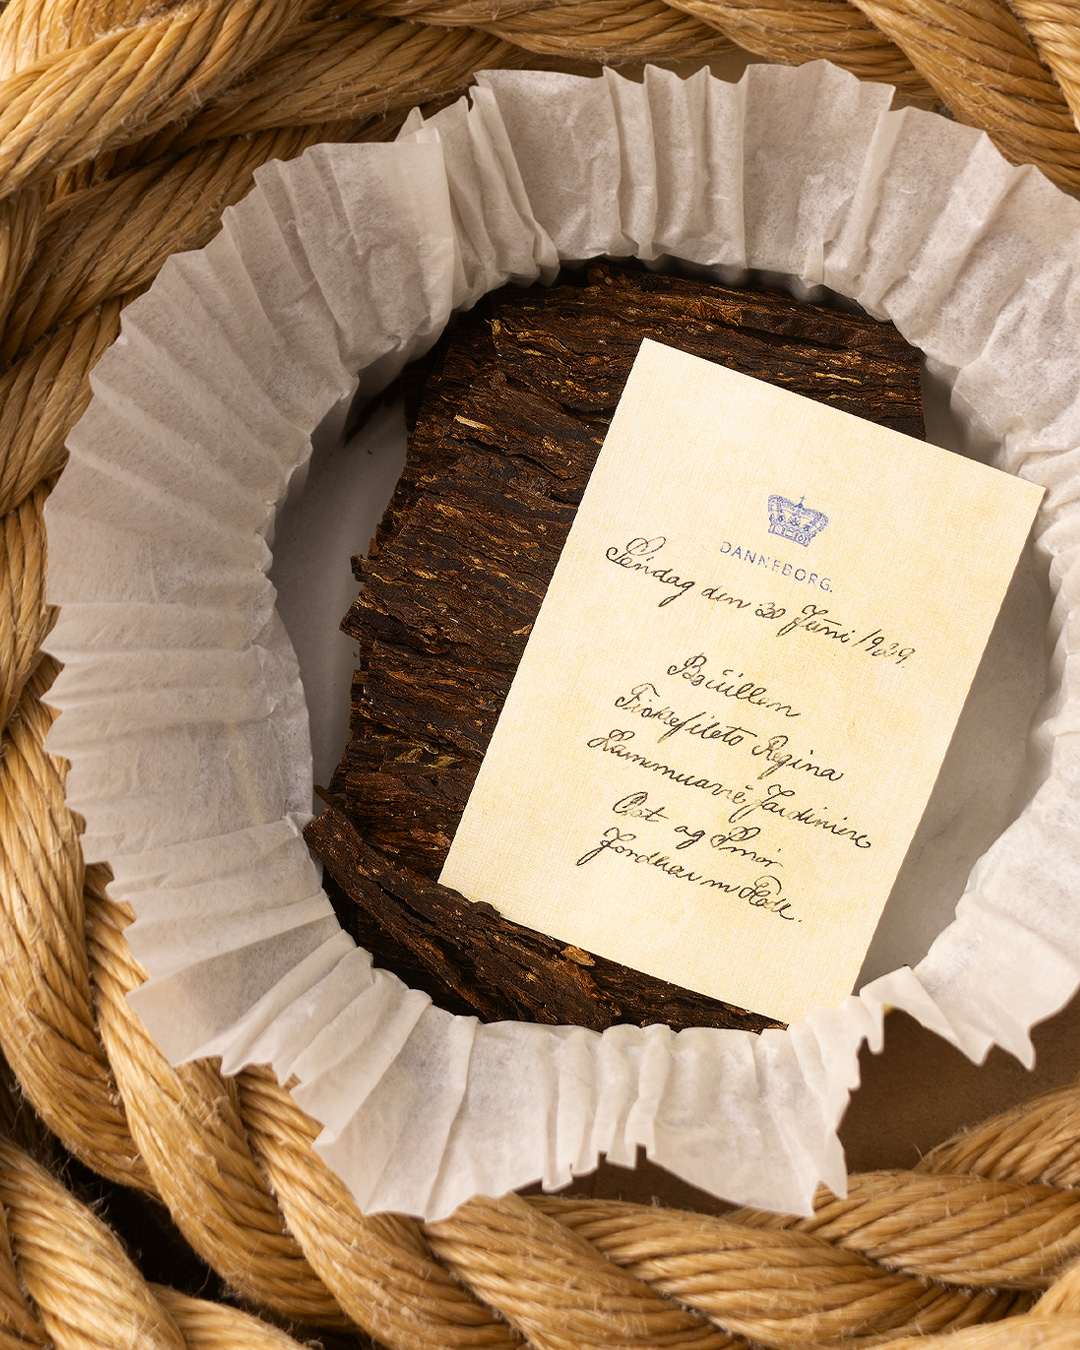 DANNEBORG.
Søndag den 30 Juni 1929.
Bouillon
Fiskefilets Regina
Lammmuarrè Jardiniere
Ost og Smør
Jordbær m Fløde.